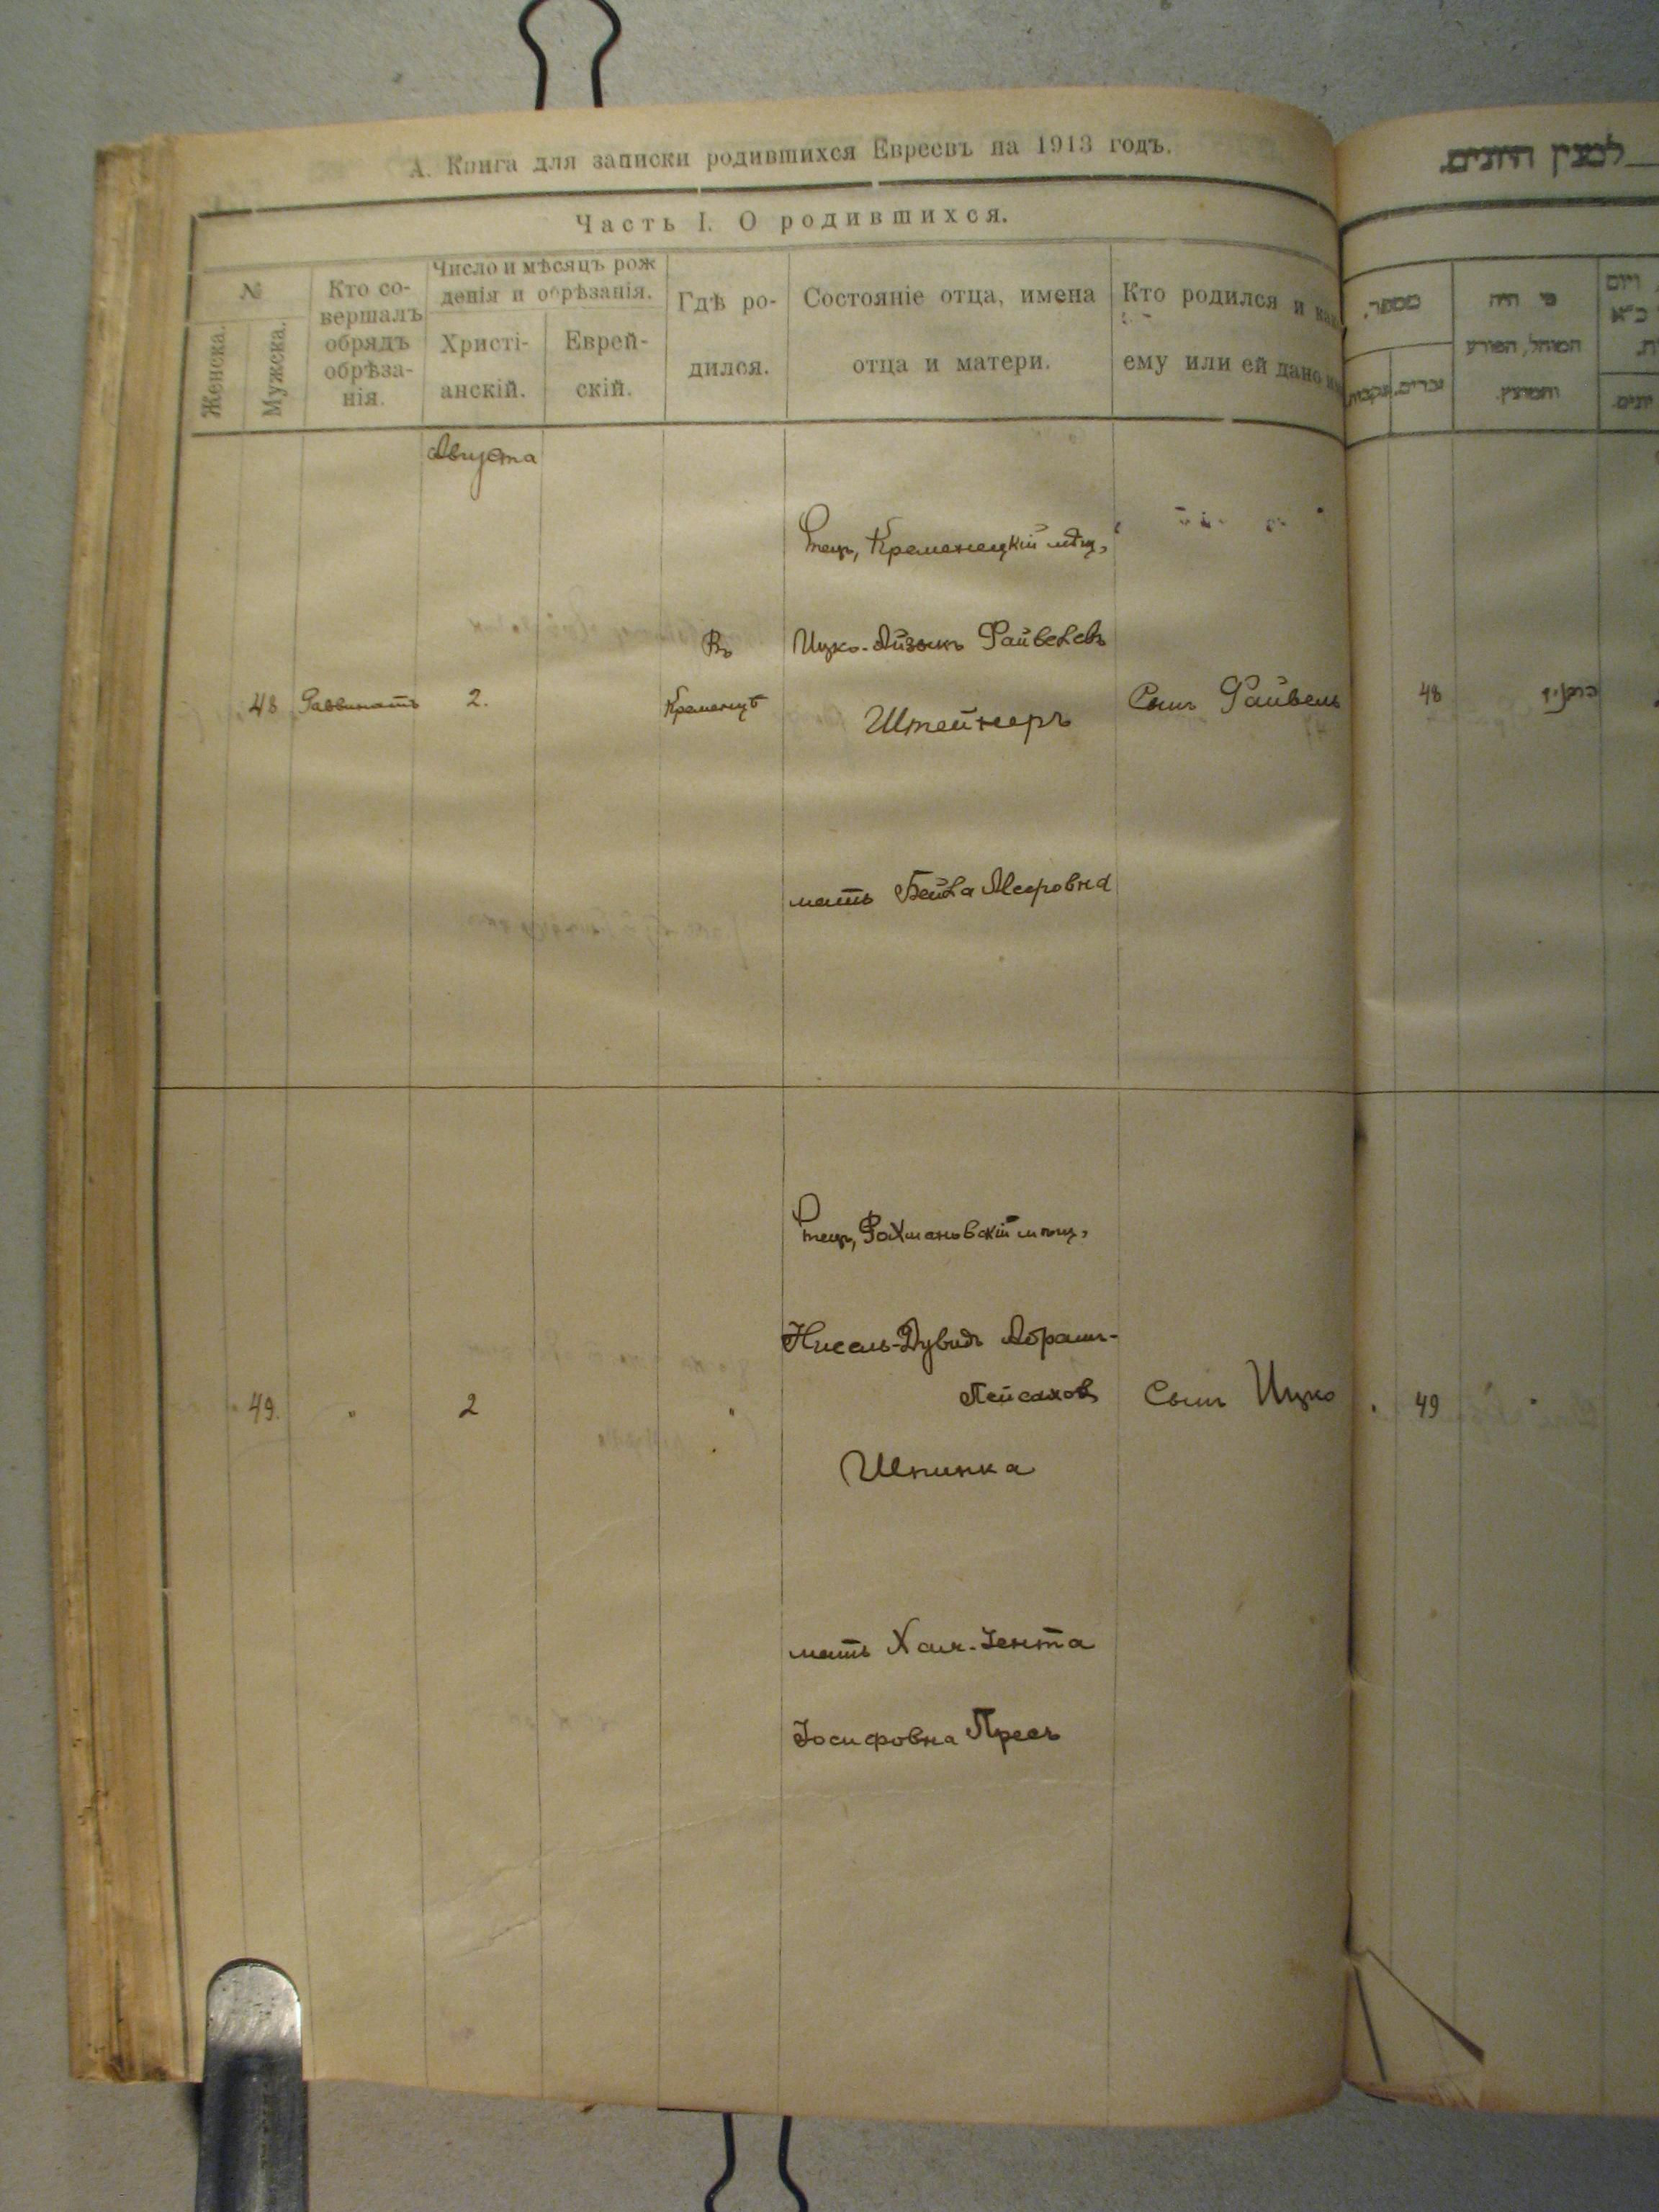 А. Книга для записки родившихся Евреевъ на 1913 годъ.
Часть I. О родившихся.
№
Женска.
Мужска.
Кто со-
вершалъ
обрядъ
обрѣза-
нія.
Число и мѣсяцъ рож
денія и обрѣзанія.
Христі-
анскій.
Еврей-
скій.
Гдѣ ро-
дился.
Состояніе отца, имена
отца и матери.
Кто родился и как
ему или ей дано
Августа
48
Раввинатъ
2.
Въ
Кременцѣ
Отецъ, Кременецкій мѣщ,
Ицко-Айзикъ Файвелевъ
Штейнеръ
мать Бейла Мееровна
Сынъ Файвель
49.
"
2
"
Отецъ, Рахмановскій мѣщ,
Нисель-Дувидъ Абрамъ-
Пейсаховъ
Шпинка
мать Хая-Іента
Іосифовна Пресъ
Сынъ Ицко
מספר.
זכרים.
נקבות
מי היה
המוהל, הפורע
והמוצץ.
ויום
48
49